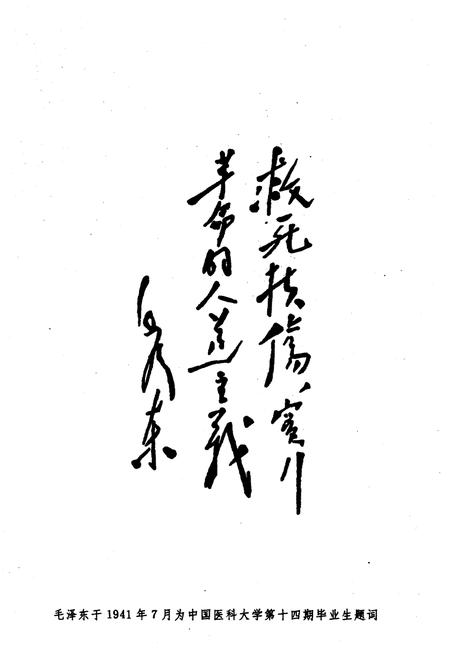 救死扶傷、實行
革命的人道主義
毛澤東
毛泽东于1941年7月为中国医科大学第十四期毕业生题词